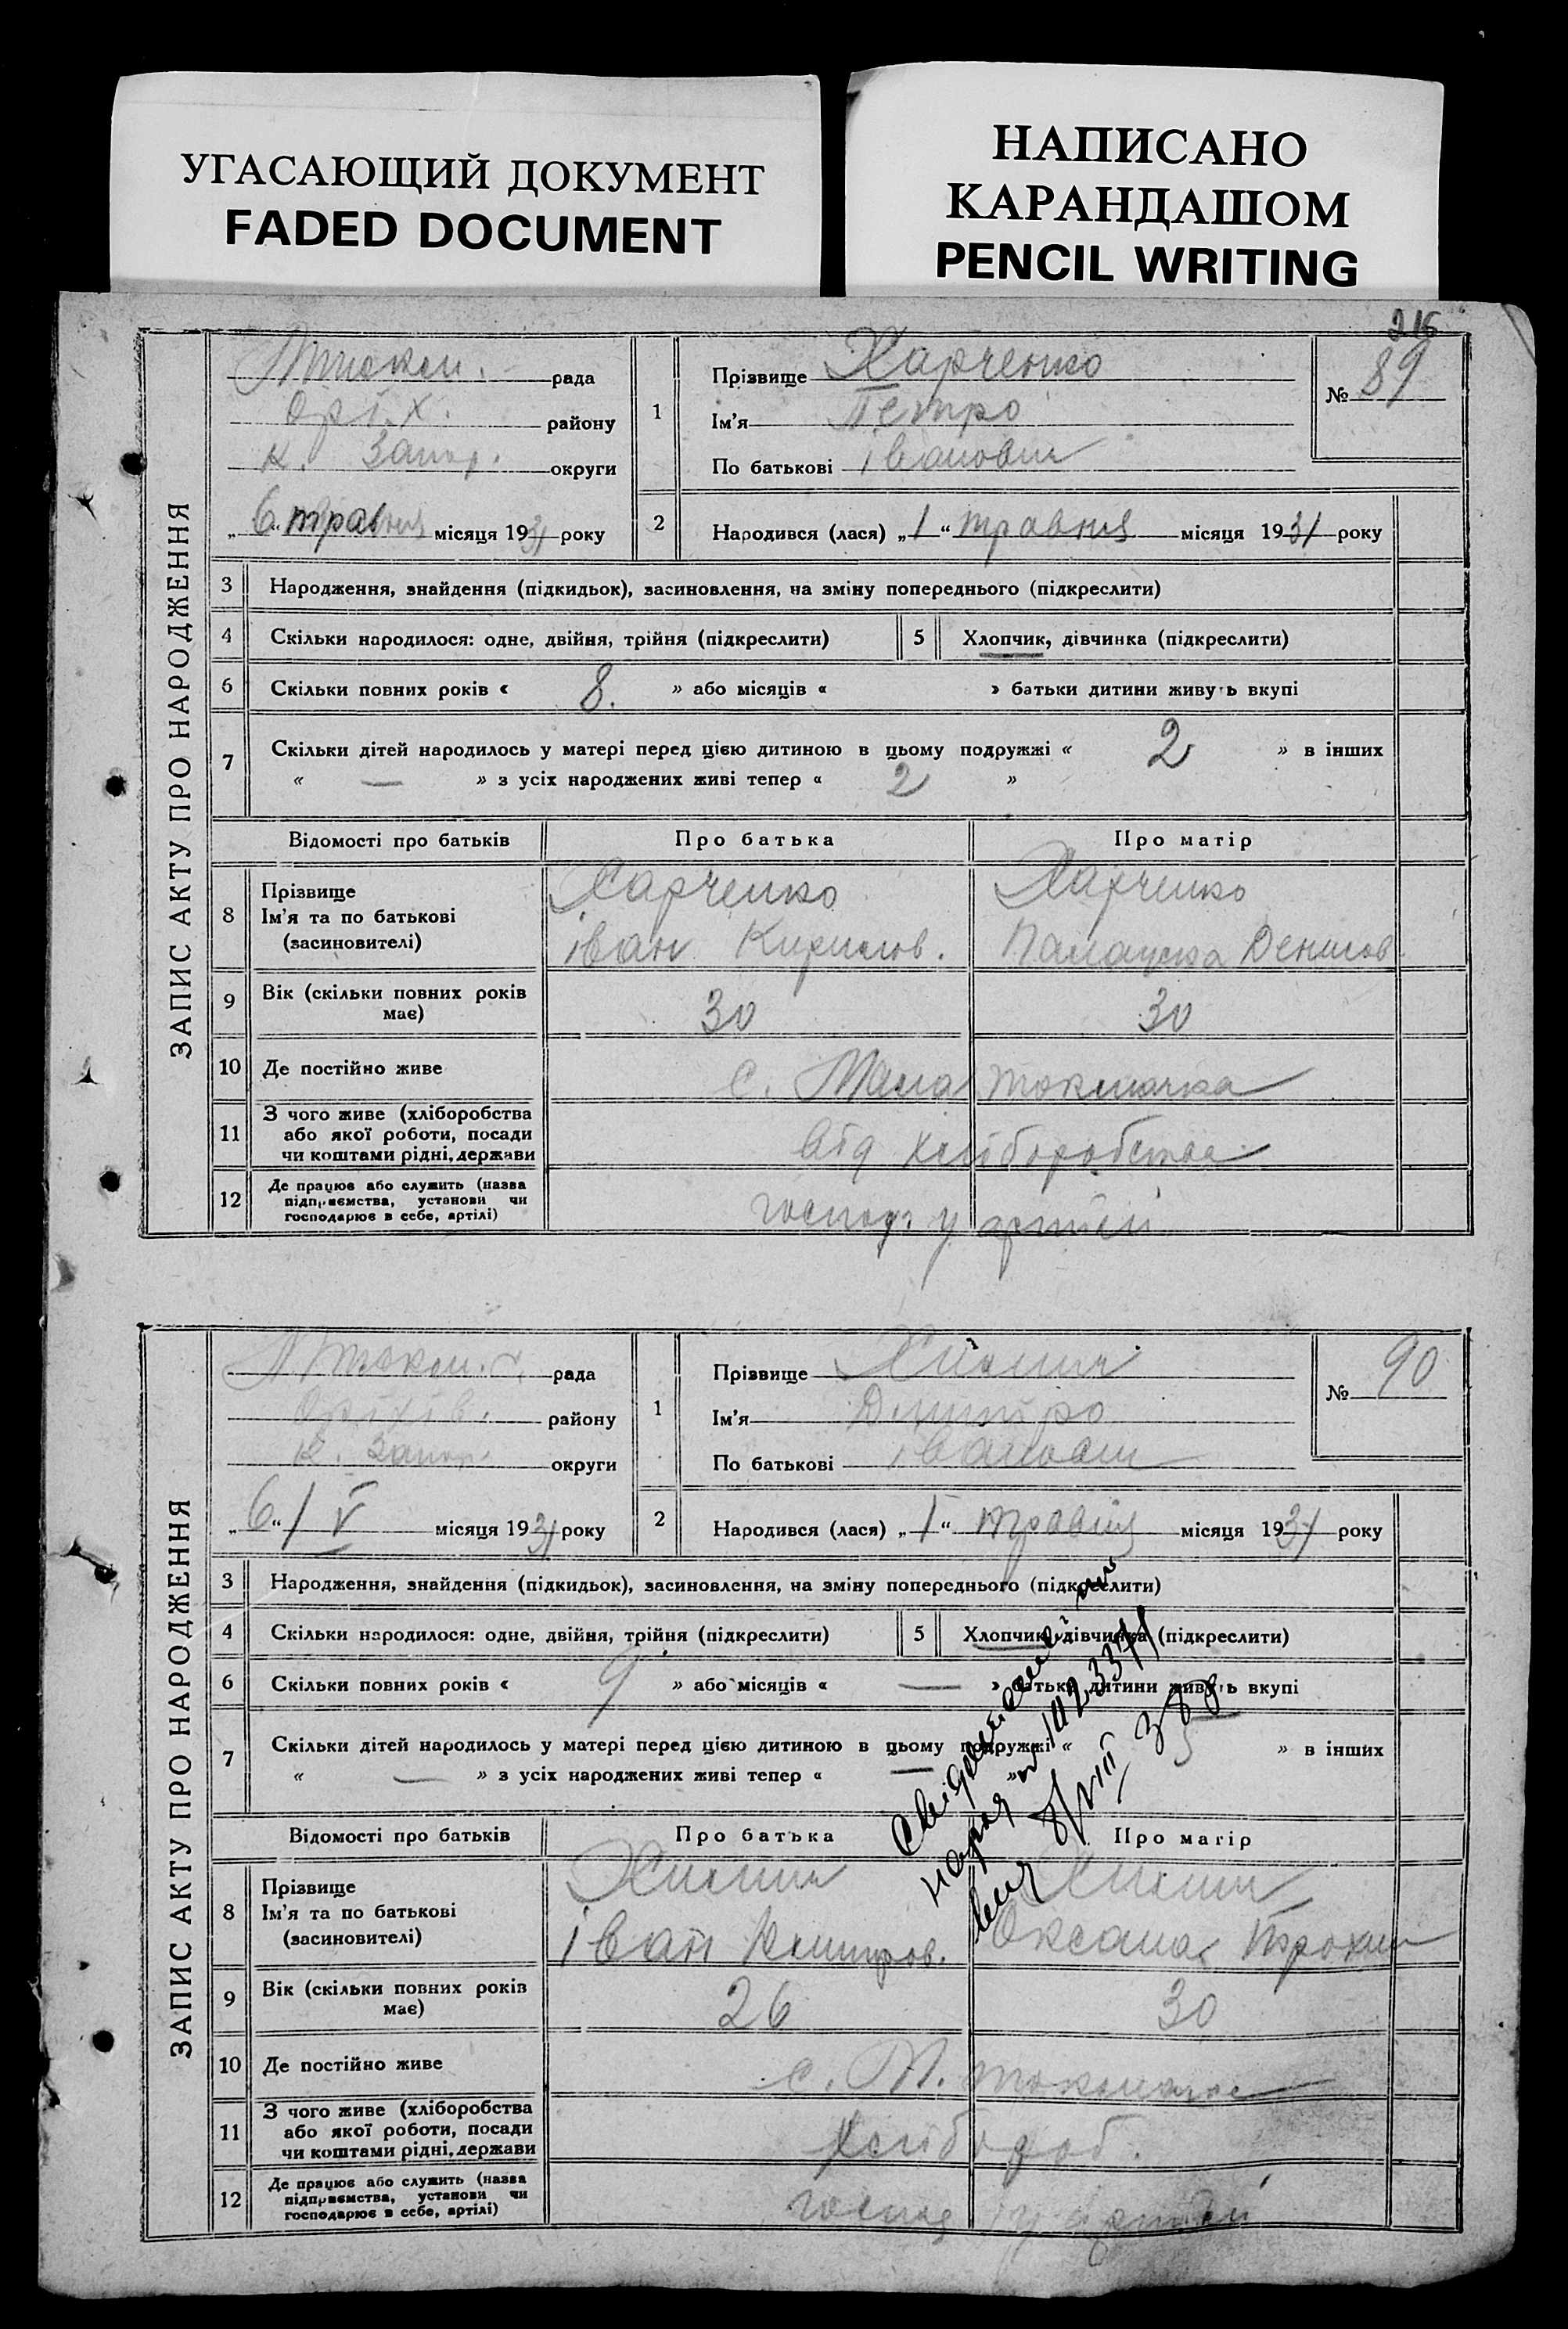 УГАСАЮЩИЙ ДОКУМЕНТ
FADED DOCUMENT
НАПИСАНО
КАРАНДАШОМ
PENCIL WRITING
216
ЗАПИС АКТУ ПРО НАРОДЖЕННЯ
рада
Оріх. району
К. Запор. округи
„6“ травня місяця 1931 року
1 Прізвище Харченко
Ім'я Петро
По батькові Іванович
№ 89
2 Народився (лася) „1“ травня місяця 1931 року
3 Народження, знайдення (підкидьок), засиновлення, на зміну попереднього (підкреслити)
4 Скільки народилося: одне, двійня, трійня (підкреслити) 5 Хлопчик, дівчинка (підкреслити)
6 Скільки повних років « 8. » або місяців « » батьки дитини живуть вкупі
7 Скільки дітей народилось у матері перед цією дитиною в цьому подружжі « 2 » в інших
« — » з усіх народжених живі тепер « 2 »
Відомості про батьків Про батька Про матір
8 Прізвище Харченко Харченко
Ім'я та по батькові
(засиновителі) Іван Кирилов. Палажка Денисов.
9 Вік (скільки повних років
має) 30 30
10 Де постійно живе с. Мала Токмачка
11 З чого живе (хліборобства
або якої роботи, посади
чи коштами рідні, держави від хліборобства
12 Де працює або служить (назва
підприємства, установи чи
господарює в себе, артілі) господ. у артілі
ЗАПИС АКТУ ПРО НАРОДЖЕННЯ
рада
Оріхів. району
К. Запор. округи
„6“/V місяця 1931 року
1 Прізвище
Ім'я Дмитро
По батькові Іванович
№ 90
2 Народився (лася) „1“ травня місяця 1931 року
3 Народження, знайдення (підкидьок), засиновлення, на зміну попереднього (підкреслити)
4 Скільки народилося: одне, двійня, трійня (підкреслити) 5 Хлопчик, дівчинка (підкреслити)
6 Скільки повних років « 9 » або місяців « — » батьки дитини живуть вкупі
7 Скільки дітей народилось у матері перед цією дитиною в цьому подружжі « » в інших
« — » з усіх народжених живі тепер « — »
Відомості про батьків Про батька Про матір
8 Прізвище
Ім'я та по батькові
(засиновителі) Іван Дмитров. Оксана Трохим
9 Вік (скільки повних років
має) 26 30
10 Де постійно живе с. М. Токмачка
11 З чого живе (хліборобства
або якої роботи, посади
чи коштами рідні, держави хлібороб.
12 Де працює або служить (назва
підприємства, установи чи
господарює в себе, артілі) господ у артілі